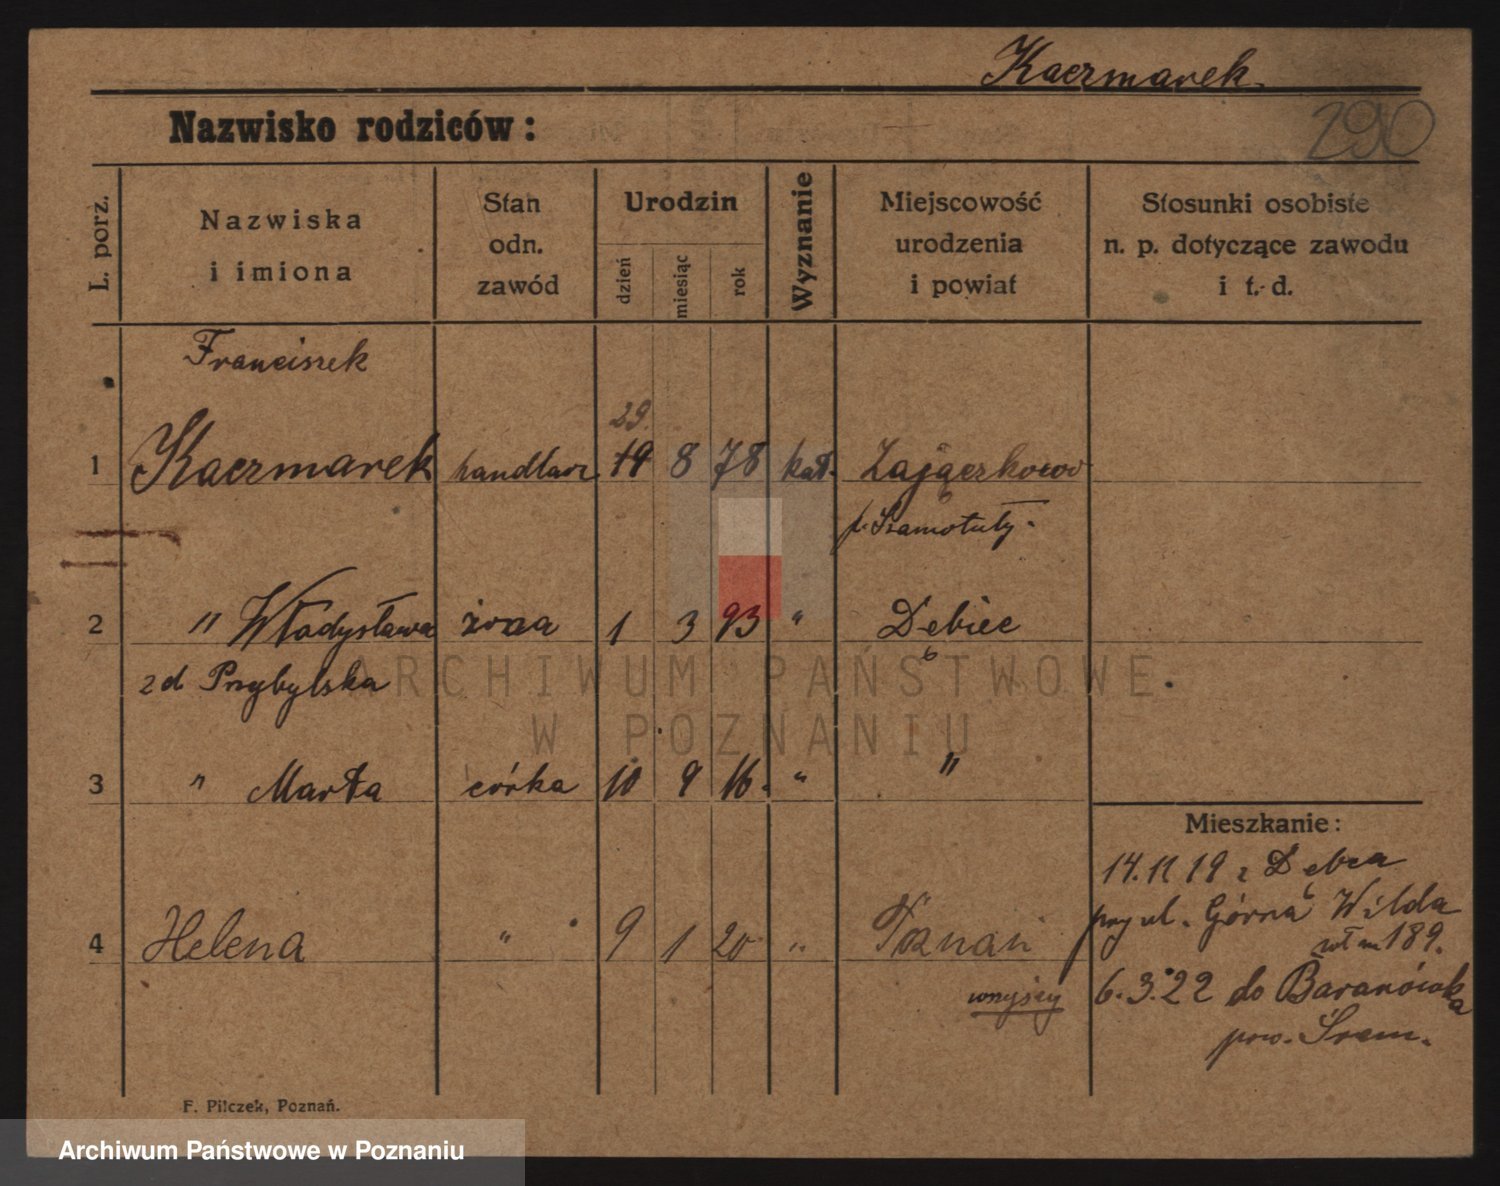 Kaczmarek
290
Nazwisko rodziców:
L. porz.
Nazwiska
i imiona
Stan
odn.
zawód
Urodzin
dzień
miesiąc
rok
Wyznanie
Miejscowość
urodzenia
i powiat
Stosunki osobiste
n. p. dotyczące zawodu
i t. d.
Franciszek
29.
1 Kaczmarek handlarz 19 8 78 kat. Zajączkowo
p. Szamotuły.
2 " Władysława żona 1 3 93 " Dębiec
z d Przybylska
3 " Marta córka 10 9 16. " "
Mieszkanie:
14.11 19 z Dębca
przy ul. Górna Wilda
189.
4 Helena " 9 1 20 " Poznań
wszyscy 6.3.22 do Baranówka
pow. Śrem.
F. Pilczek, Poznań.
ARCHIWUM PAŃSTWOWE
W POZNANIU
Archiwum Państwowe w Poznaniu